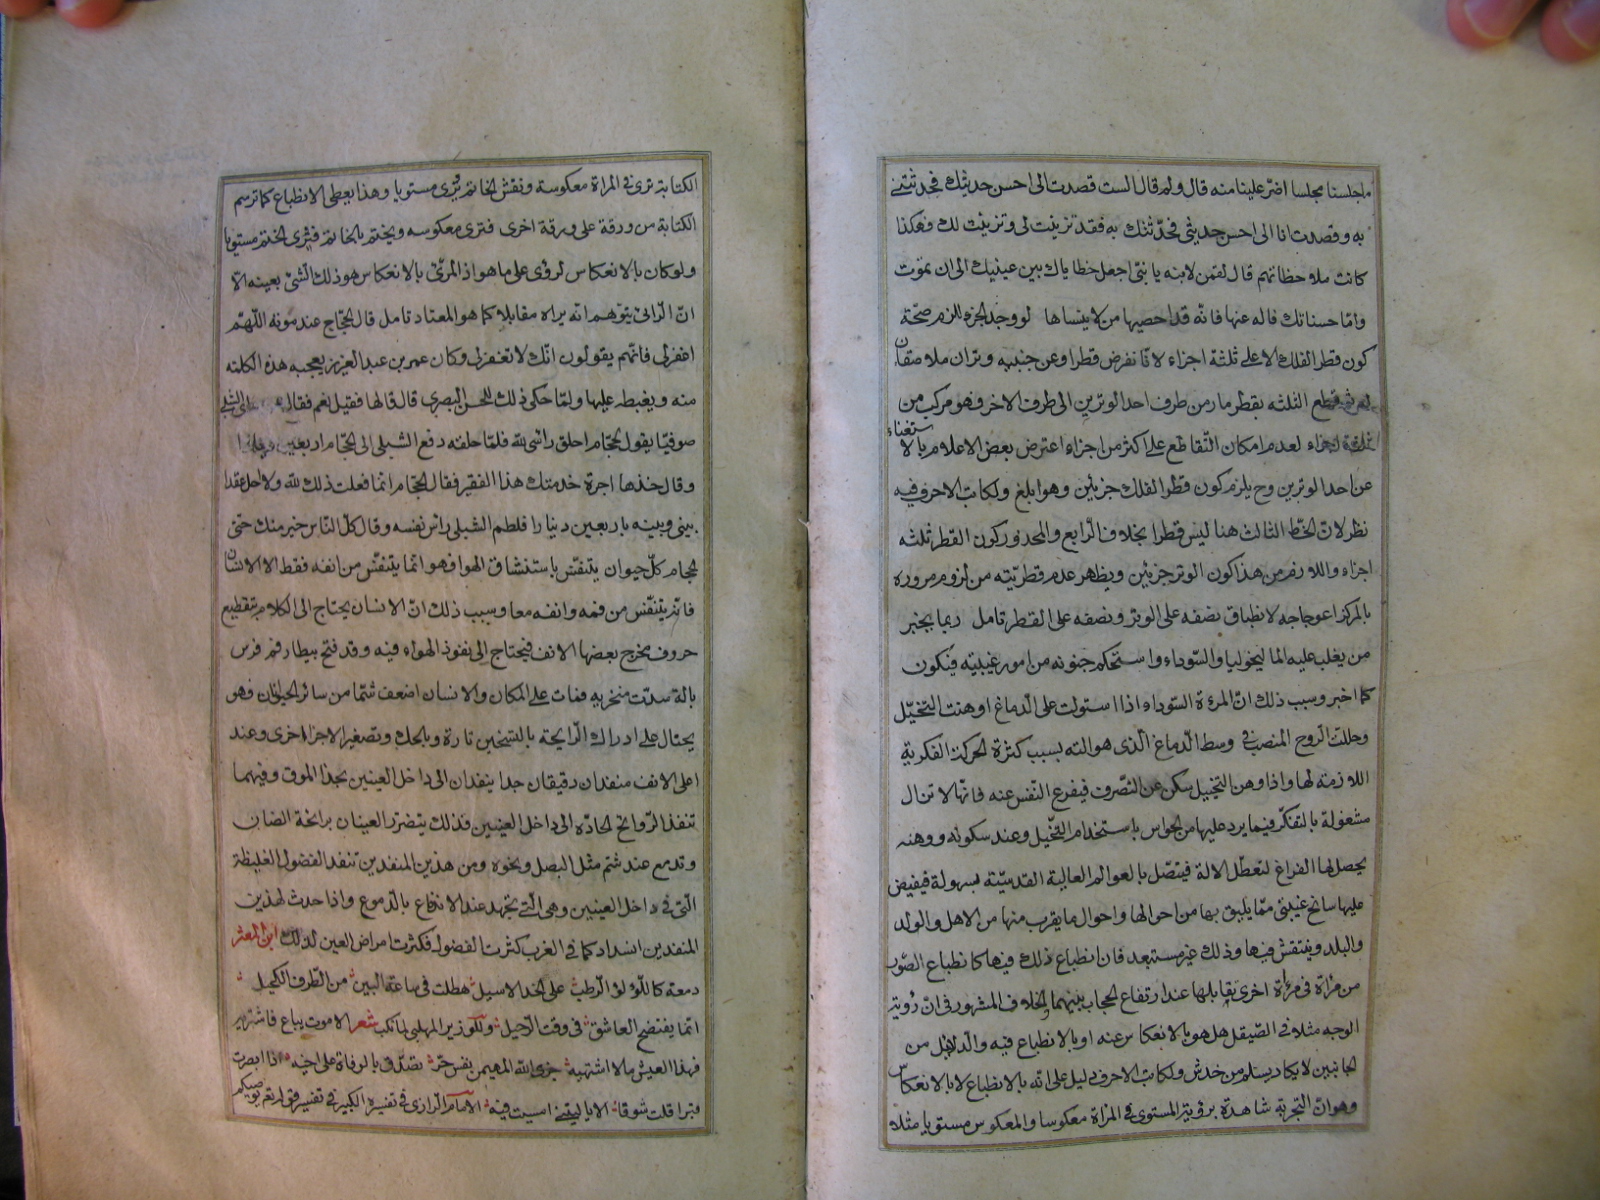 ماجلسنا مجلسا اضر علينا منه قال ولم قال الست قصدت الى احسن حديثك فحدثتنى
به وقصدت انا الى احسن حديثى فحدثتك به فقد تزينت لى وتزينت لك وهكذا
كانت ملاحظاتهم قال لقمن لابنه يا بنى اجعل خطاياك بين عينيك الى ان تموت
واما حسناتك فاله عنها فانه قد احصيها من لا ينساها لو وجد الجزء للزم صحة
كون قطر الفلك الاعلى ثلثة اجزاء لانا نفرض قطرا وعن جنبيه وتران ملاصقان
قطع الثلثه بقطر مار من طرف احد الوترين الى طرف الاخر وهو مركب من
ثلثة اجزاء لعدم امكان التقاطع على اكثر من اجزاء اعترض بعض الاعلام بالاستغناء
عن احد الوترين وح يلزم كون قطر الفلك جزئين وهو ابلغ ولكاتب الاحرف فيه
نظر لان الخط الثالث هنا ليس قطرا بخلاف الرابع والمحذور كون القطر ثلثه
اجزاء واللازم من هذا كون الوتر جزئين ويظهر عدم قطريته من لزوم مروره
بالمركز اعوجاجه لانطباق نصفه على الوتر ونصفه على القطر تامل ربما يخبر
من يغلب عليه الماليخوليا والسوداء واستحكم جنونه من امور غيبيته فيكون
كما اخبر وسبب ذلك ان المرءة السوداء اذا استولت على الدماغ اوهنت التخيل
وحللت الروح المنصب فى وسط الدماغ الذى هو الته بسبب كثرة الحركة الفكرية
اللازمة لها واذا وهن التخييل سكن عن التصرف فيفرع النفس عنه فانها لا تزال
مشغولة بالتفكر فيما يرد عليها من الحواس باستخدام التخيل وعند سكونه ووهنه
يحصل لها الفراغ لتعطل الالة فيتصل بالعوالم العالية القدسيته بسهولة فيفيض
عليها سانح غيبى مما يليق بها من احوالها واحوال ما يقرب منها من الاهل والولد
والبلد وينتقش فيها وذلك غير مستبعد فان انطباع ذلك فيها كانطباع الصور
من مراة فى مراة اخرى تقابلها عند ارتفاع الحجاب بينهما الخلاف المشهور فى ان رؤية
الوجه مثلا فى الصيقل هل هو بالانعكاس عنه او بالانطباع فيه والدلايل من
الجانبين لا يكاد يسلم من خدش ولكاتب الاحرف دليل على انه بالانطباع لا بالانعكاس
وهو ان التجربة شاهدة برؤية المستوى فى المراة معكوسا والمعكوس مستويا مثلا
الكتابة ترى فى المراة معكوسة ونقش الخاتم يرى مستويا وهذا يعطى الانطباع كما ترسم
الكتابة من ورقة على ورقة اخرى فترى معكوسه ويختم بالخاتم فيرى الختم مستويا
ولو كان بالانعكاس لرؤى على ما هو اذ المرئى بالانعكاس هو ذلك الشئ بعينه الا
ان الرائى يتوهم انه يراه مقابلا كما هو المعتاد تامل قال الحجاج عند موته اللهم
اغفر لى فانهم يقولون انك لا تغفر لى وكان عمر بن عبد العزيز يعجبه هذه الكلمة
منه ويغبطه عليها ولما حكى ذلك للحسن البصرى قال قالها فقيل نعم فقال الشبلى
صوفيا يقول لحجام احلق راسى لله فلما حلقه دفع الشبلى الى الحجام اربعين دينارا
وقال خذها اجرة خدمتك هذا الفقير فقال الحجام انما فعلت ذلك لله ولا احل عقدا
بينى وبينه باربعين دينارا فلطم الشبلى راس نفسه وقال كل الناس خير منك حتى
الحجام كل حيوان يتنفس باستنشاق الهوا فهو انما يتنفس من انفه فقط الا الانسان
فانه يتنفس من فمه وانفه معا وسبب ذلك ان الانسان يحتاج الى الكلام بتقطيع
حروف مخرج بعضها الانف فيحتاج الى نفوذ الهواء فيه وقد فتح بيطار فم فرس
بالة سدت منخريه فمات على المكان والانسان اضعف شما من سائر الحيوان فهو
يحتال على ادراك الرايحة بالتسخين تارة وبالحك وتصغير الاجزا اخرى وعند
اعلى الانف منفذان دقيقان جدا ينفذان الى داخل العينين بحذا الموق وفيهما
تنفذ الروائح الحاده الى داخل العينين فذلك يتضرر العينان برائحة الضان
وتدمع عند شم مثل البصل ونحوه ومن هذين المنفذين تنفذ الفضول الغليظة
التى فى داخل العينين وهى التى تجهد عند الاندفاع بالدموع واذا حدث لهذين
المنفذين انسداد كما فى الغرب كثرت الفضول فكثرت امراض العين لذلك ابن المعتز
دمعة كاللؤلؤ الرطب على الخد الاسيل هطلت فى ساعة البين من الطرف الكحيل
انما يفتضح العاشق فى وقت الرحيل وللوزير المهلبى لما نكب شعر الا موت يباع فاشتريه
فهذا العيش مالا اشتهيه جزى الله المهيمن نفس حر تصدق بالوفاة على اخيه اذا ابصرت
قبرا قلت شوقا الا يا ليتنى امسيت فيه الامام الرازى فى تفسيره الكبير فى تفسير قوله تعم يوصيكم